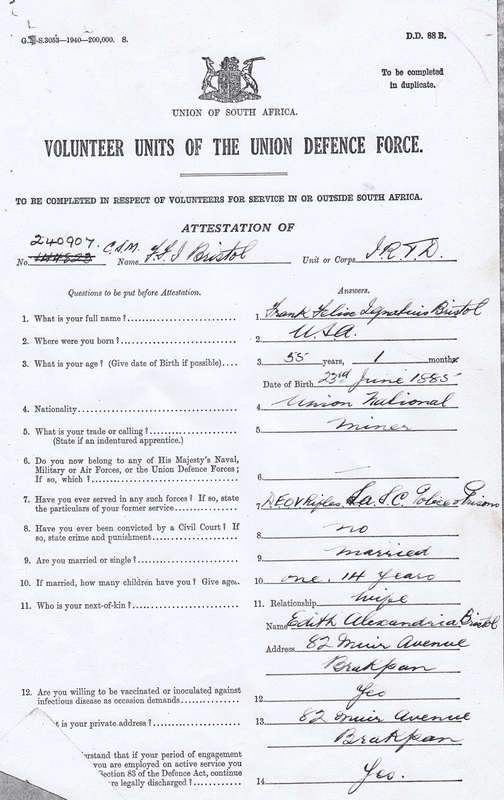 G.P.-S.3053—1940—200,000. S. D.D. 88 B.
To be completed
in duplicate.
UNION OF SOUTH AFRICA.
VOLUNTEER UNITS OF THE UNION DEFENCE FORCE.
TO BE COMPLETED IN RESPECT OF VOLUNTEERS FOR SERVICE IN OR OUTSIDE SOUTH AFRICA.
ATTESTATION OF
240907. C.S.M.
No. 144823 Name F.F.I Bristol Unit or Corps I.R.T.D.
Questions to be put before Attestation. Answers.
1. What is your full name? 1. Frank Felix Ignatius Bristol
2. Where were you born? 2 U.S.A.
3. What is your age? (Give date of Birth if possible) 3. 55 years, 1 months
Date of Birth 23rd June 1885
4. Nationality 4 Union National
5. What is your trade or calling? 5. Miner
(State if an indentured apprentice.)
6. Do you now belong to any of His Majesty's Naval,
Military or Air Forces, or the Union Defence Forces;
If so, which? 6. —
7. Have you ever served in any such forces? If so, state
the particulars of your former service 7. DEOV Rifles, S.C. Police & Prisons
8. Have you ever been convicted by a Civil Court? If
so, state crime and punishment 8 no
9. Are you married or single? 9 married
10. If married, how many children have you? Give ages. 10 one. 14 years
11. Who is your next-of-kin? 11. Relationship wife
Name Edith Alexandria Bristol
Address 82 Muir Avenue
Brakpan
12. Are you willing to be vaccinated or inoculated against
infectious disease as occasion demands 12 Yes
at is your private address? 13 82 Muir Avenue
Brakpan
erstand that if your period of engagement
you are employed on active service you
Section 83 of the Defence Act, continue
are legally discharged? 14 Yes.